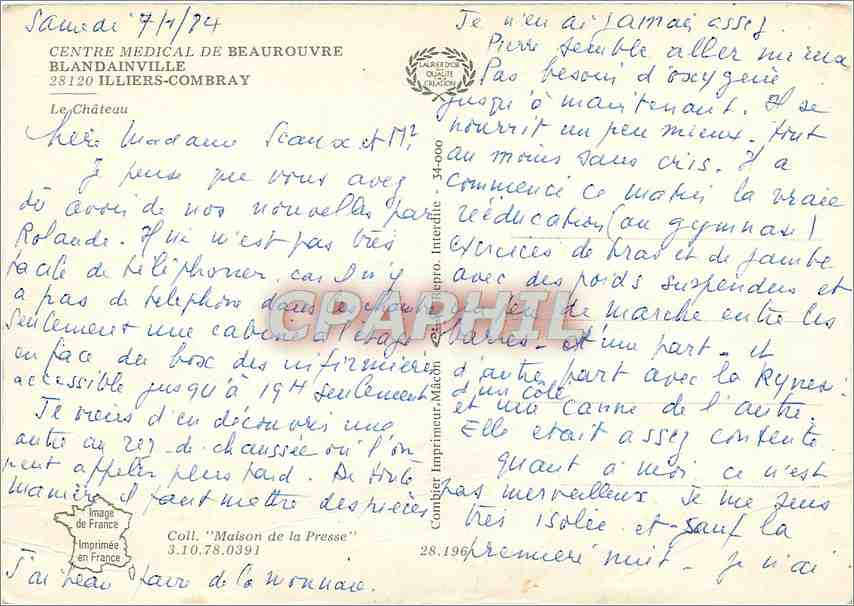 Samedi 7/1/84
CENTRE MEDICAL DE BEAUROUVRE
BLANDAINVILLE
28120 ILLIERS-COMBRAY
Le Château
Chère Madame Scaux et Mr
Je pense que vous avez
dû avoir de nos nouvelles par
Rolande. Il ne m'est pas très
facile de téléphoner car il n'y
a pas de téléphone dans les chambres
seulement une cabine à l'étage
en face du box des infirmières
accessible jusqu'à 19H seulement
Je viens d'en découvrir une
autre au rez-de-chaussée où l'on
peut appeler plus tard. De toute
manière il faut mettre des pièces
J'ai beau faire de la monnaie.
Je n'en ai jamais assez
Pierre semble aller mieux
Pas besoin d'oxygène
jusqu'à maintenant. Il se
nourrit un peu mieux. tout
au moins sans cris. Il a
commencé ce matin la vraie
rééducation (au gymnase)
exercices de bras et de jambe
avec des poids suspendus et
un peu de marche entre les
barres - d'une part - et
d'autre part avec la kyné :
d'un côté
et une canne de l'autre.
Elle était assez contente
Quant à moi ce n'est
pas merveilleux. Je me sens
très isolée et sauf la
première nuit - je n'ai
LAURIER D'OR
DE
QUALITÉ
CREATION
Combier Imprimeur Mâcon
Repro. Interdite
34-000
Image
de France
Imprimée
en France
Coll. "Maison de la Presse"
3.10.78.0391
28.196
CPAPHIL